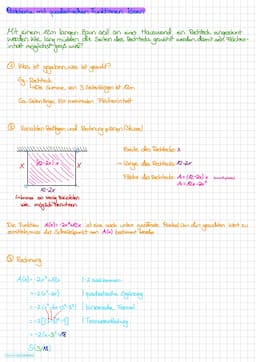 Probleme mit quadratischen Funktionen lösen
Mit einem 12m langen Zaun soll an einer Hauswand ein Rechteck eingezäunt
werden. Wie lang müssen die Seiten des Rechtecks gewählt werden, damit der Flächen-
inhalt möglichst groß wird?
① Was ist gegeben, was ist gesucht?
Geg: Rechteck
Summe von 3 Seitenlängen ist 12m
Ges: Seitenlänge für maximalen Flächeninhalt
② Variablen festlegen und Rechnung planen (Skizze)
x
(12-2x)·x
x
12-2x
Breite des Rechtecks: x
→ Länge des Rechtecks: 12-2x
Fläche des Rechtecks: A=(12-2x)·x
A=12x-2x²
so wenig Variablen
wie möglich
Die Funktion A(x)=-2x²+12x ist eine nach unten geöffnete Parabel. Um den gesuchten Wert zu
ermitteln, muss der Scheitelpunkt von A(x) bestimmt werden.
③ Rechnung
A(x)=-2x²+12x | -2 ausklammern
=-2(x²-6x) | quadratische Ergänzung
=-2(x²-6x+3²-3²) | binomische Formel
=-2[(x-3)²-9]
=-2(x-3)²+18
S(3/18)